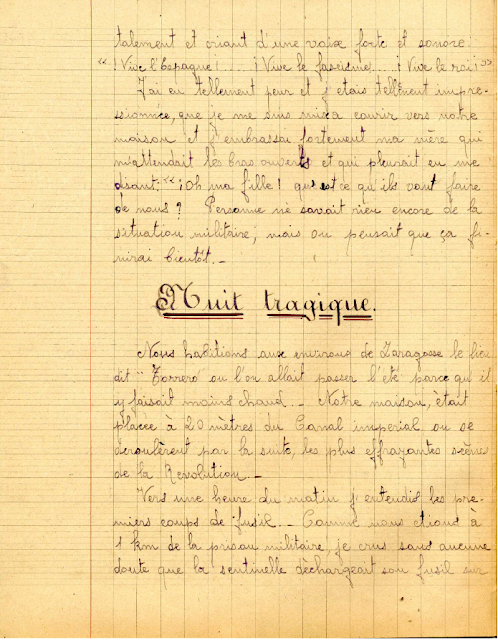 talement et criant d'une voixe forte et sonore.
"¡ Vive l'Espagne!.... ¡ Vive le fascisme... ¡ Vive le roi!"
J'ai eu tellement peur et j'etais tellement impre-
ssionnée, que je me suis mise a courir vers notre
maison et j'embrassai fortement ma mère qui
m'attendait les bras ouverts et qui pleurait en me
disant: "¡Oh ma fille! qu'est ce qu'ils vont faire
de nous? Personne ne savait rien encore de la
situation militaire, mais on pensait que ça fi-
nirai bientôt._
Nuit tragique.
Nous habitions aux environs de Zaragosse le lieu
dit "Torrero" ou l'on allait passer l'été parce qu'il
y faisait moins chaud._ Notre maison, était
placée à 20 mètres du Canal imperial ou se
deroulèrent par la suite, les plus effrayantes scènes
de la Revolution._
Vers une heure du matin j'entendis les pre-
miers coups de fusil._ Comme nous etions à
1 km de la prison militaire, je crus sans aucune
doute que la sentinelle dechargeait son fusil sur